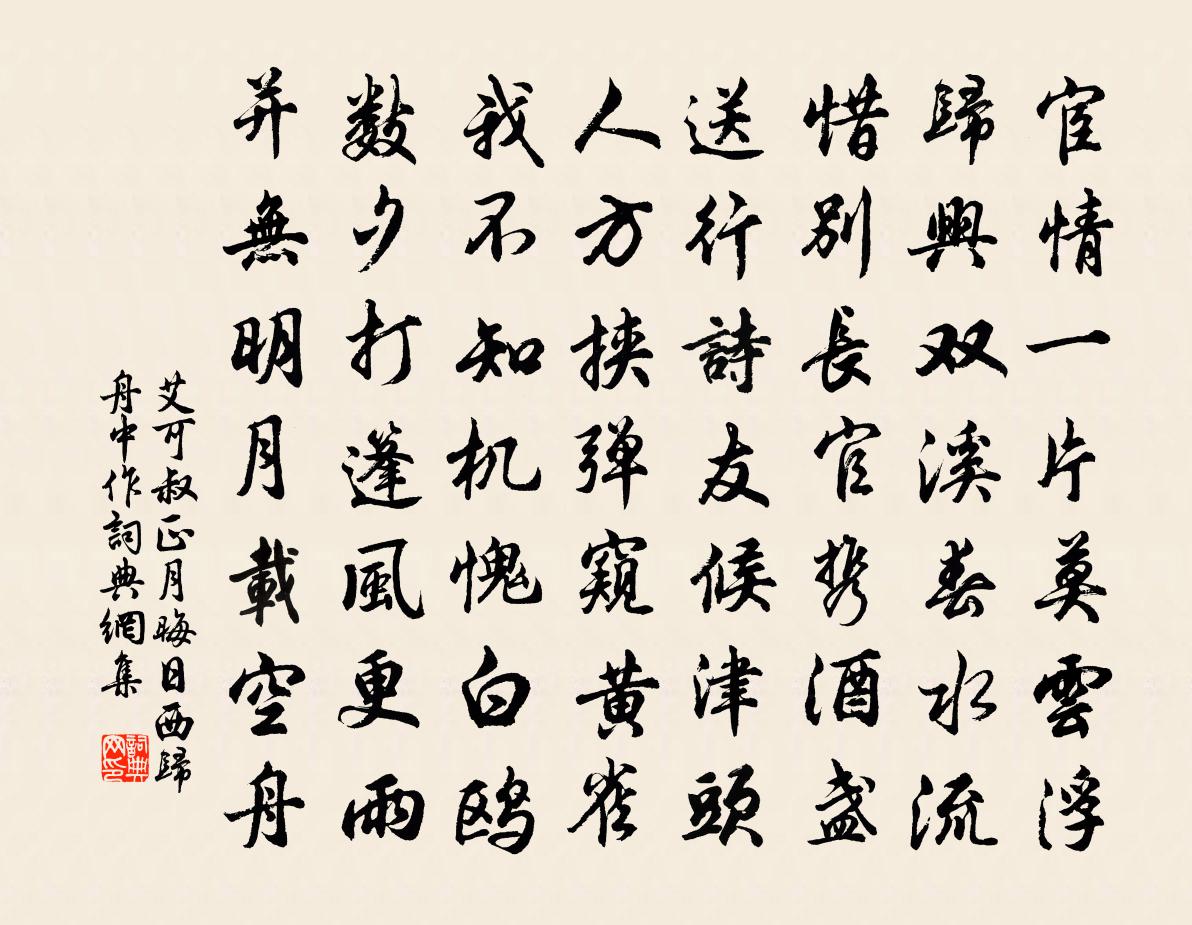 宦情一片莫雲浮
歸興双溪春水流
惜別長官携酒盞
送行詩友候津頭
人方挟弾窺黄雀
我不知机愧白鸥
數夕打蓬風更雨
并無明月載空舟
艾可叔正月晦日西歸
舟中作詞典網集
詞典
网印